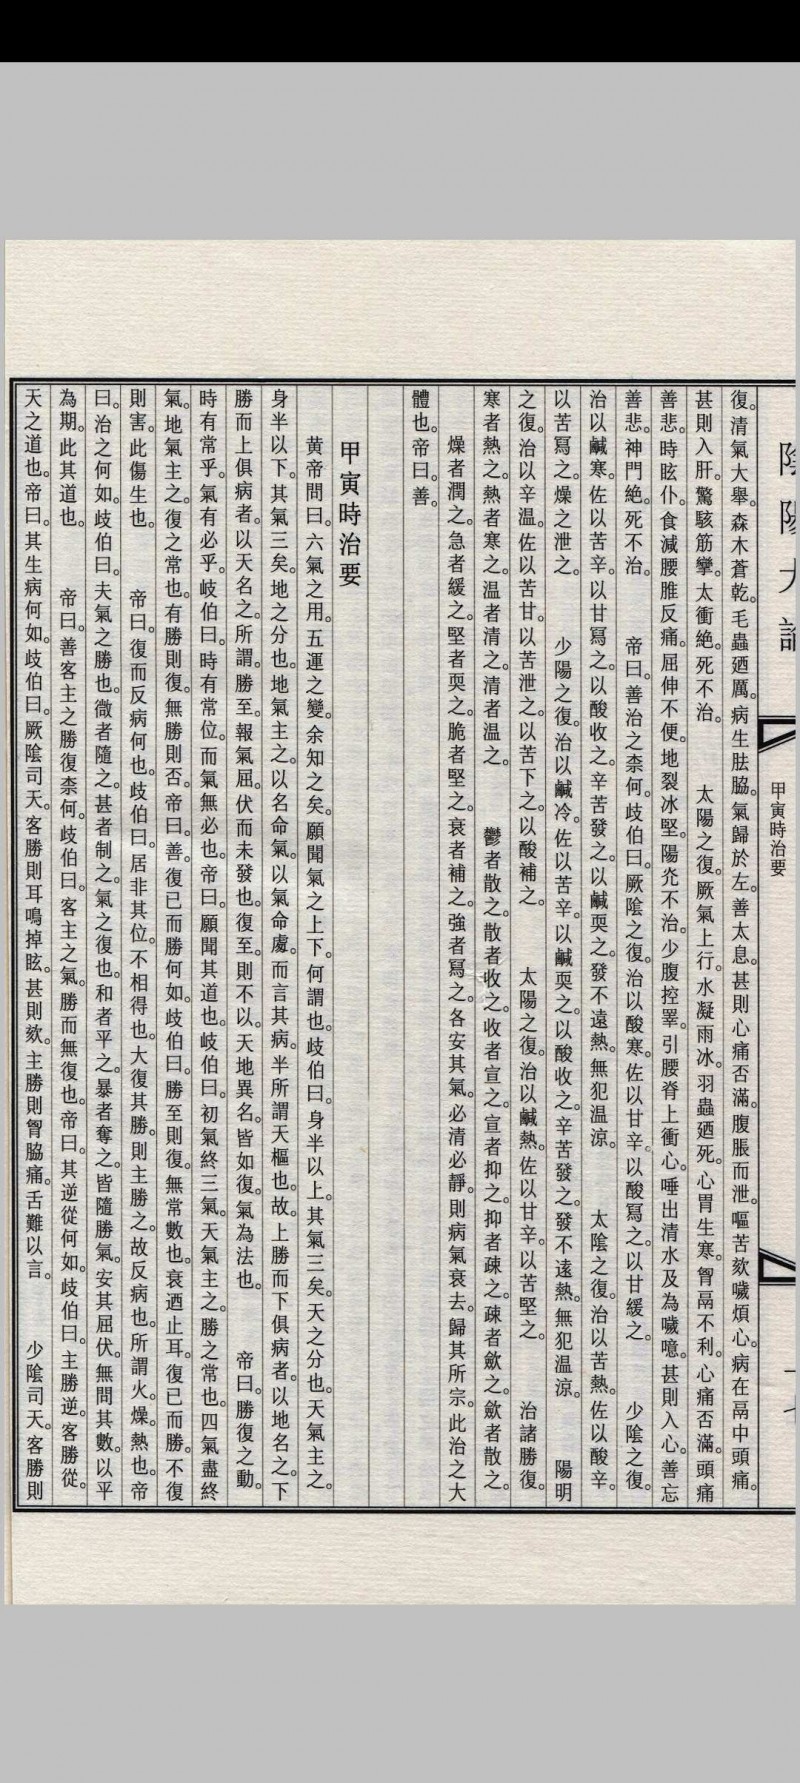 陰陽大論
甲寅時治要
復。清氣大舉。森木蒼乾。毛蟲廼厲。病生胠脇。氣歸於左。善太息。甚則心痛否滿。腹脹而泄。嘔苦欬噦煩心。病在鬲中頭痛。
甚則入肝。驚駭筋攣。太衝絶。死不治。　太陽之復。厥氣上行。水凝雨冰。羽蟲廼死。心胃生寒。胷鬲不利。心痛否滿。頭痛
善悲。時眩仆。食減腰脽反痛。屈伸不便。地裂冰堅。陽灮不治。少腹控睪。引腰脊上衝心。唾出清水及為噦噫。甚則入心。善忘
善悲。神門絶。死不治。　帝曰。善治之柰何。歧伯曰。厥陰之復。治以酸寒。佐以甘辛。以酸寫之。以甘緩之。　少陰之復。
治以鹹寒。佐以苦辛。以甘寫之。以酸收之。辛苦發之。以鹹耎之。發不遠熱。無犯温涼。　太陰之復。治以苦熱。佐以酸辛。
以苦寫之。燥之泄之。　少陽之復。治以鹹冷。佐以苦辛。以鹹耎之。以酸收之。辛苦發之。發不遠熱。無犯温涼。　陽明
之復。治以辛温。佐以苦甘。以苦泄之。以苦下之。以酸補之。　太陽之復。治以鹹熱。佐以甘辛。以苦堅之。　治諸勝復。
寒者熱之。熱者寒之。温者清之。清者温之。　鬱者散之。散者收之。收者宣之。宣者抑之。抑者疎之。疎者歛之。歛者散之。
燥者潤之。急者緩之。堅者耎之。脆者堅之。衰者補之。強者寫之。各安其氣。必清必靜。則病氣衰去。歸其所宗。此治之大
體也。帝曰。善。
甲寅時治要
黄帝問曰。六氣之用。五運之變。余知之矣。願聞氣之上下。何謂也。歧伯曰。身半以上。其氣三矣。天之分也。天氣主之。
身半以下。其氣三矣。地之分也。地氣主之。以名命氣。以氣命處。而言其病。半所謂天樞也。故。上勝而下俱病者。以地名之。下
勝而上俱病者。以天名之。所謂。勝至。報氣屈。伏而未發也。復至。則不以。天地異名。皆如復。氣為法也。　帝曰。勝復之動。
時有常乎。氣有必乎。岐伯曰。時有常位。而氣無必也。帝曰。願聞其道也。岐伯曰。初氣終三氣。天氣主之。勝之常也。四氣盡終
氣。地氣主之。復之常也。有勝則復。無勝則否。帝曰。善。復已而勝何如。歧伯曰。勝至則復。無常數也。衰迺止耳。復已而勝。不復
則害。此傷生也。　帝曰。復而反病何也。歧伯曰。居非其位。不相得也。大復其勝。則主勝之。故反病也。所謂火。燥。熱也。帝
曰。治之何如。歧伯曰。夫氣之勝也。微者隨之。甚者制之。氣之復也。和者平之。暴者奪之。皆隨勝氣。安其屈伏。無問其數。以平
為期。此其道也。　帝曰。善客主之勝復柰何。歧伯曰。客主之氣。勝而無復也。帝曰。其逆從何如。歧伯曰。主勝逆。客勝從。
天之道也。帝曰。其生病何如。歧伯曰。厥陰司天。客勝則耳鳴掉眩。甚則欬。主勝則胷脇痛。舌難以言。　少陰司天。客勝則